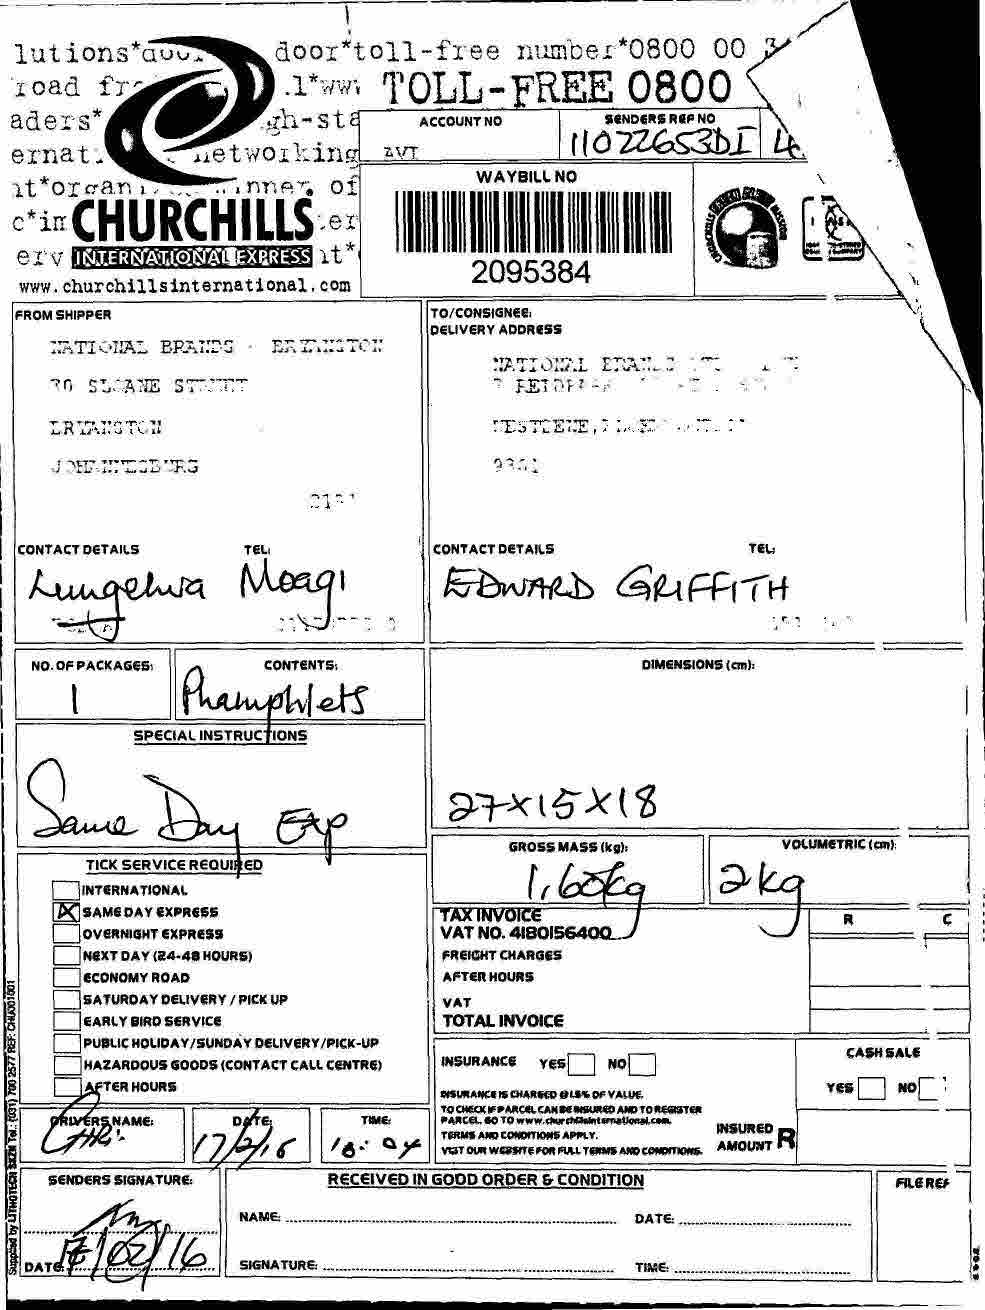 door*toll-free number*0800 00
road
TOLL-FREE 0800
aders*
ACCOUNT NO
AVI
SENDERS REF NO
11022653DI
networking
WAYBILL NO
2095384
CHURCHILLS
INTERNATIONAL EXPRESS
www.churchillsinternational.com
FROM SHIPPER
NATIONAL BRANDS - BRYANSTON
30 SLOANE STREET
BRYANSTON
JOHANNESBURG
TO/CONSIGNEE:
DELIVERY ADDRESS
NATIONAL
9301
CONTACT DETAILS
TEL:
Lungelwa Moagi
CONTACT DETAILS
TEL:
EDWARD GRIFFITH
NO. OF PACKAGES:
1
CONTENTS:
Phamphlets
DIMENSIONS (cm):
27x15x18
SPECIAL INSTRUCTIONS
Same Day Exp
GROSS MASS (kg):
1,60kg
VOLUMETRIC (cm):
2kg
TICK SERVICE REQUIRED
INTERNATIONAL
SAME DAY EXPRESS
OVERNIGHT EXPRESS
NEXT DAY (24-48 HOURS)
ECONOMY ROAD
SATURDAY DELIVERY / PICK UP
EARLY BIRD SERVICE
PUBLIC HOLIDAY/SUNDAY DELIVERY/PICK-UP
HAZARDOUS GOODS (CONTACT CALL CENTRE)
AFTER HOURS
TAX INVOICE
VAT NO. 4180156400
R C
FREIGHT CHARGES
AFTER HOURS
VAT
TOTAL INVOICE
INSURANCE YES NO
INSURANCE IS CHARGED @ 1.5% OF VALUE.
TO CHECK IF PARCEL CAN BE INSURED AND TO REGISTER
PARCEL. GO TO www.churchillsinternational.com.
TERMS AND CONDITIONS APPLY.
VISIT OUR WEBSITE FOR FULL TERMS AND CONDITIONS.
CASH SALE
YES NO
INSURED
AMOUNT R
DRIVERS NAME:
DATE:
17/2/16
TIME:
SENDERS SIGNATURE:
DATE: 17/02/16
RECEIVED IN GOOD ORDER & CONDITION
NAME:
DATE:
SIGNATURE:
TIME:
FILE REF
Supplied by LITHOTECH SXZN Tel.: (031) 700 2577 REF: CHU001001